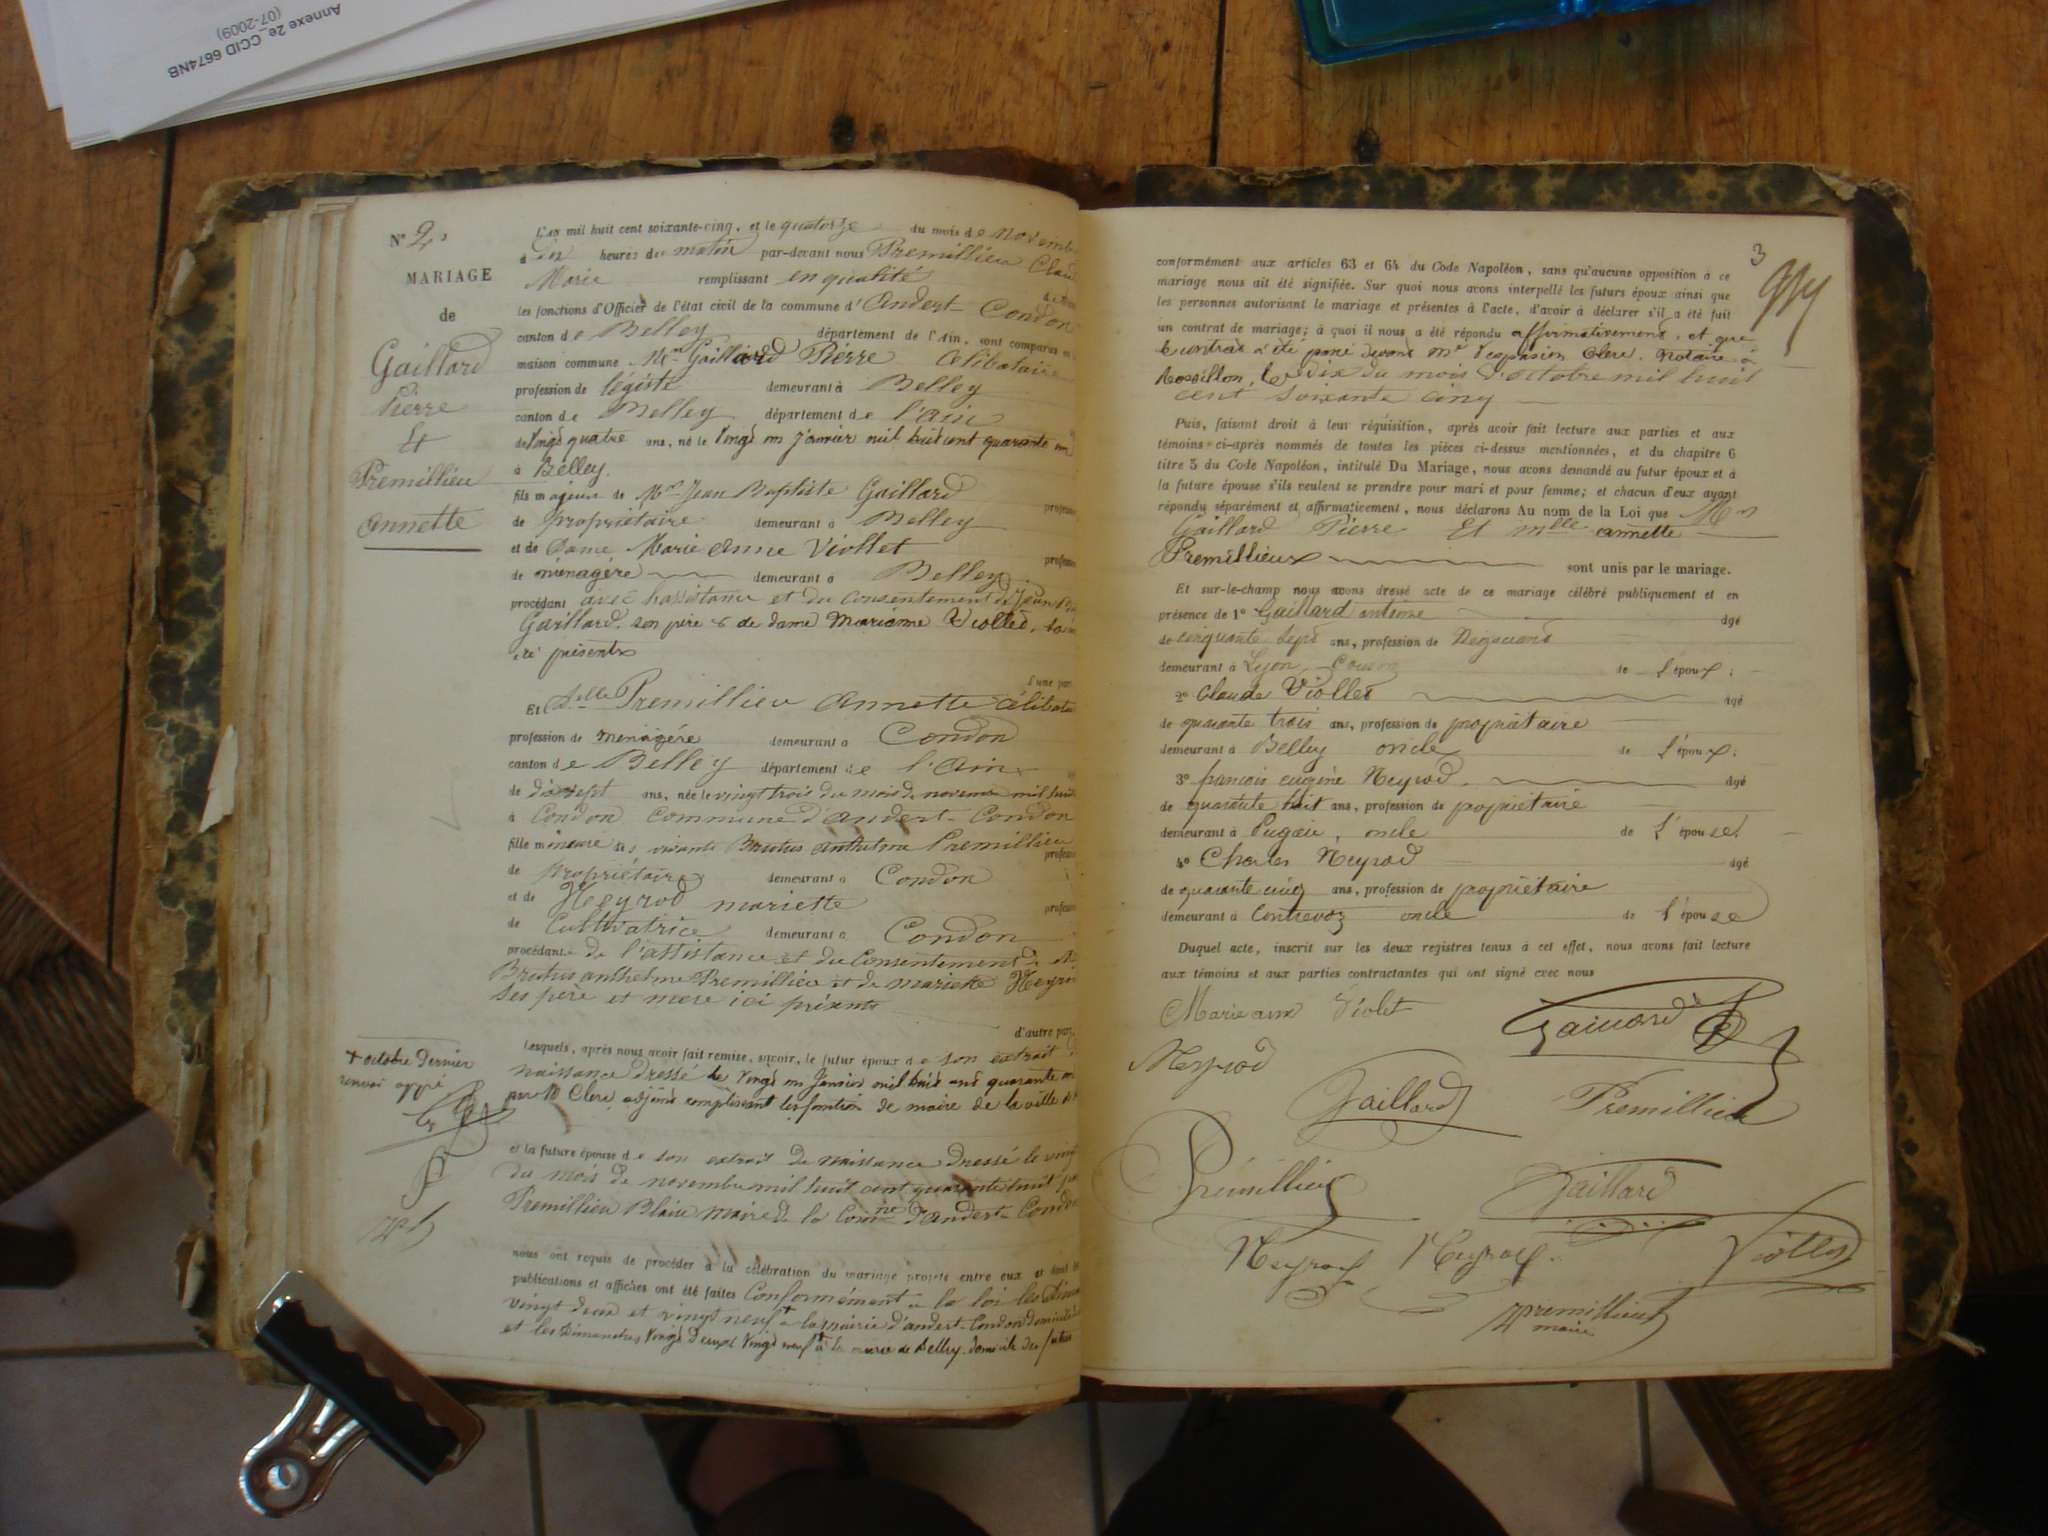 Annexe 2e_CCID 6674NB
(07-2009)
N° 2
MARIAGE
de
Gaillard
Pierre
Et
Premillieu
annette
L'an mil huit cent soixante-cinq, et le quatorze du mois de novembre
à dix heures du matin par-devant nous Premillieu Claude
Marie remplissant en qualité
les fonctions d'Officier de l'état civil de la commune d'Andert-Condon
canton de Belley département de l'Ain, sont comparus en
maison commune Mr Gaillard Pierre Célibataire
profession de légiste demeurant à Belley
canton de Belley département de l'ain
de vingt quatre ans, né le vingt un janvier mil huit cent quarante un
à Belley.
fils majeur de Mr Jean Baptiste Gaillard
de propriétaire demeurant à Belley
et de Dame Marie anne Viollet
de ménagère demeurant à Belley
procédant avec l'assistance et du consentement de Jean
Gaillard son père & de dame Marianne Viollet,
ici présents
l'une part
Et Delle Premillieu Annette Célibataire
profession de ménagère demeurant à Condon
canton de Belley département de l'Ain
de dixsept ans, née le vingt trois du mois de novembre mil huit
à Condon Commune d'andert-Condon
fille mineure des vivants Brutus anthelme Premillieu
de propriétaire demeurant à Condon
et de Neyrod mariette
de Cultivatrice demeurant à Condon
procédante de l'assistance et du Consentement de
Brutus anthelme Premillieu et de mariette Neyrod
ses père et mère ici présents
d'autre part
Lesquels, après nous avoir fait remise, savoir, le futur époux de son extrait de
naissance dressé le vingt un janvier mil huit cent quarante un
par M Clerc adjoint remplissant les fonctions de maire de la ville de
et la future épouse de son extrait de naissance dressé le vingt
du mois de novembre mil huit cent quarante huit par
Premillieu Blaise maire de la Comne d'andert-Condon
nous ont requis de procéder à la célébration du mariage projeté entre eux et dont les
publications et affiches ont été faites Conformément à la loi les dimanches
vingt deux et vingt neuf + à la mairie d'andert-Condon domicile
et les dimanches vingt deux & vingt neuf + à la mairie de Belley domicile du futur
+ octobre dernier
renvoi appé
3
conformément aux articles 63 et 64 du Code Napoléon, sans qu'aucune opposition à ce
mariage nous ait été signifiée. Sur quoi nous avons interpellé les futurs époux ainsi que
les personnes autorisant le mariage et présentes à l'acte, d'avoir à déclarer s'il a été fait
un contrat de mariage; à quoi il nous a été répondu affirmativement, et que
le contrat a été passé devant Me Vespasien Clerc, Notaire à
Rossillon, le dix du mois d'octobre mil huit
cent soixante cinq
Puis, faisant droit à leur réquisition, après avoir fait lecture aux parties et aux
témoins ci-après nommés de toutes les pièces ci-dessus mentionnées, et du chapitre 6
titre 5 du Code Napoléon, intitulé Du Mariage, nous avons demandé au futur époux et à
la future épouse s'ils veulent se prendre pour mari et pour femme; et chacun d'eux ayant
répondu séparément et affirmativement, nous déclarons Au nom de la Loi que Mr
Gaillard Pierre Et Mlle annette
Premillieux sont unis par le mariage.
Et sur-le-champ nous avons dressé acte de ce mariage célébré publiquement et en
présence de 1° Gaillard antoine âgé
de cinquante sept ans, profession de Negociant
demeurant à Lyon, Cousin de l'époux;
2° Claude Viollet âgé
de quarante trois ans, profession de propriétaire
demeurant à Belley oncle de l'époux;
3° francois eugène Neyrod âgé
de quarante huit ans, profession de propriétaire
demeurant à Pugieu, oncle de l'épouse
4° Charles Neyrod âgé
de quarante cinq ans, profession de propriétaire
demeurant à Contrevoz oncle de l'épouse
Duquel acte, inscrit sur les deux registres tenus à cet effet, nous avons fait lecture
aux témoins et aux parties contractantes qui ont signé avec nous
Marie anne Violet
Gaillard
Neyrod
Gaillard
Premillieu
Prémillieu
Gaillard
Neyrod
Neyrod
Viollet
Premillieu
maire